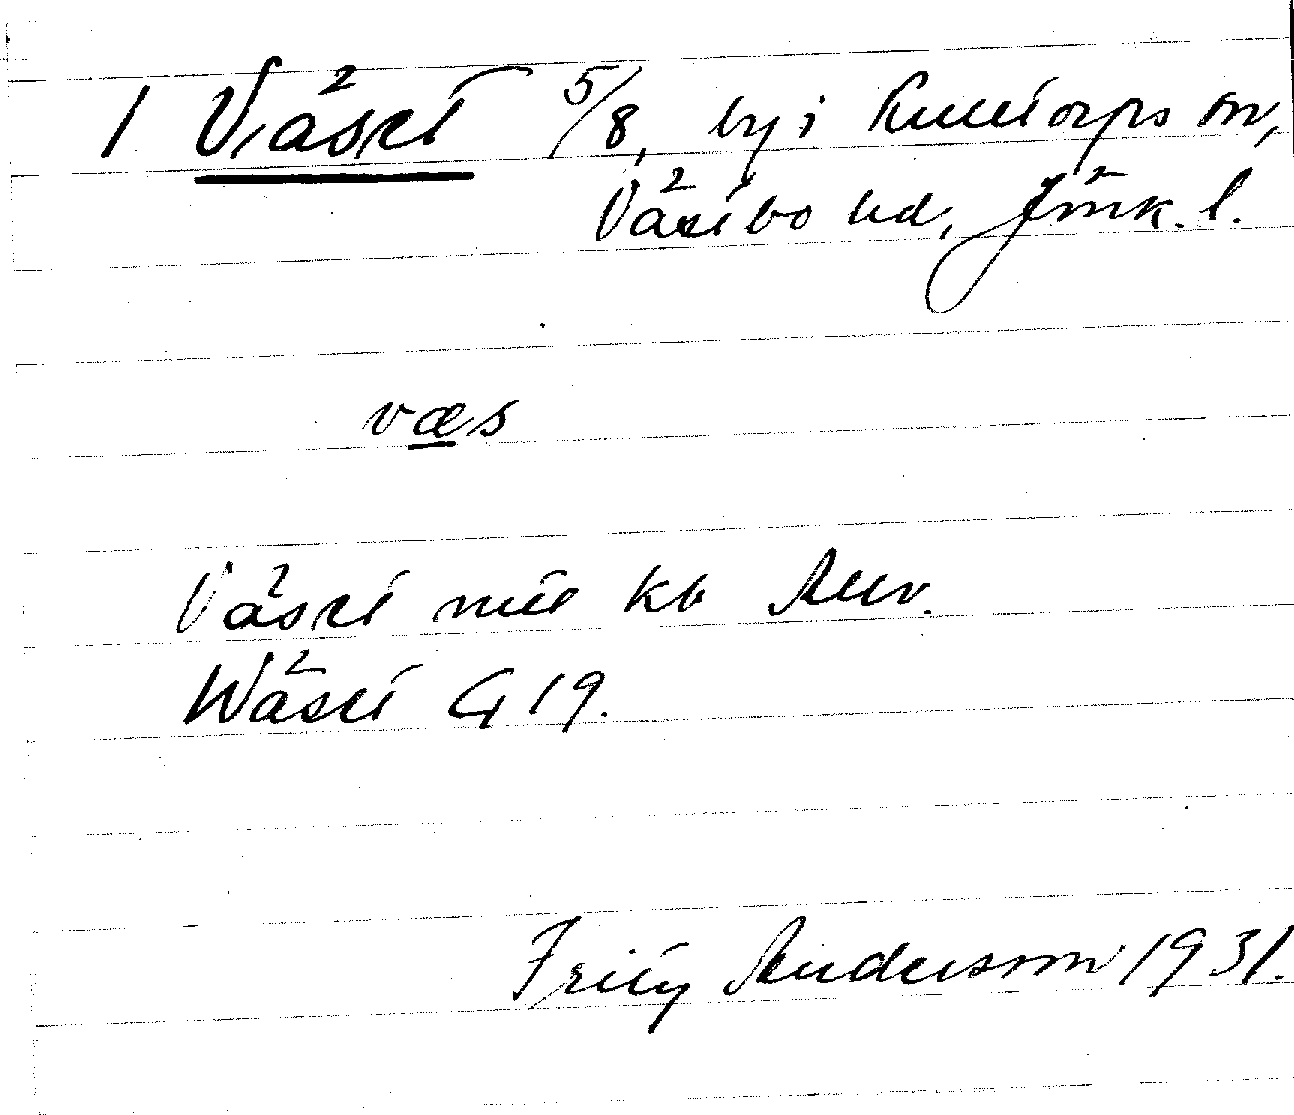 1 Väset 5/8, by i Kulltorps sn,
Västbo hd, Jönk. l.
væs
Väset kb
Wäset G 19.
Fritz Anderson 1931.